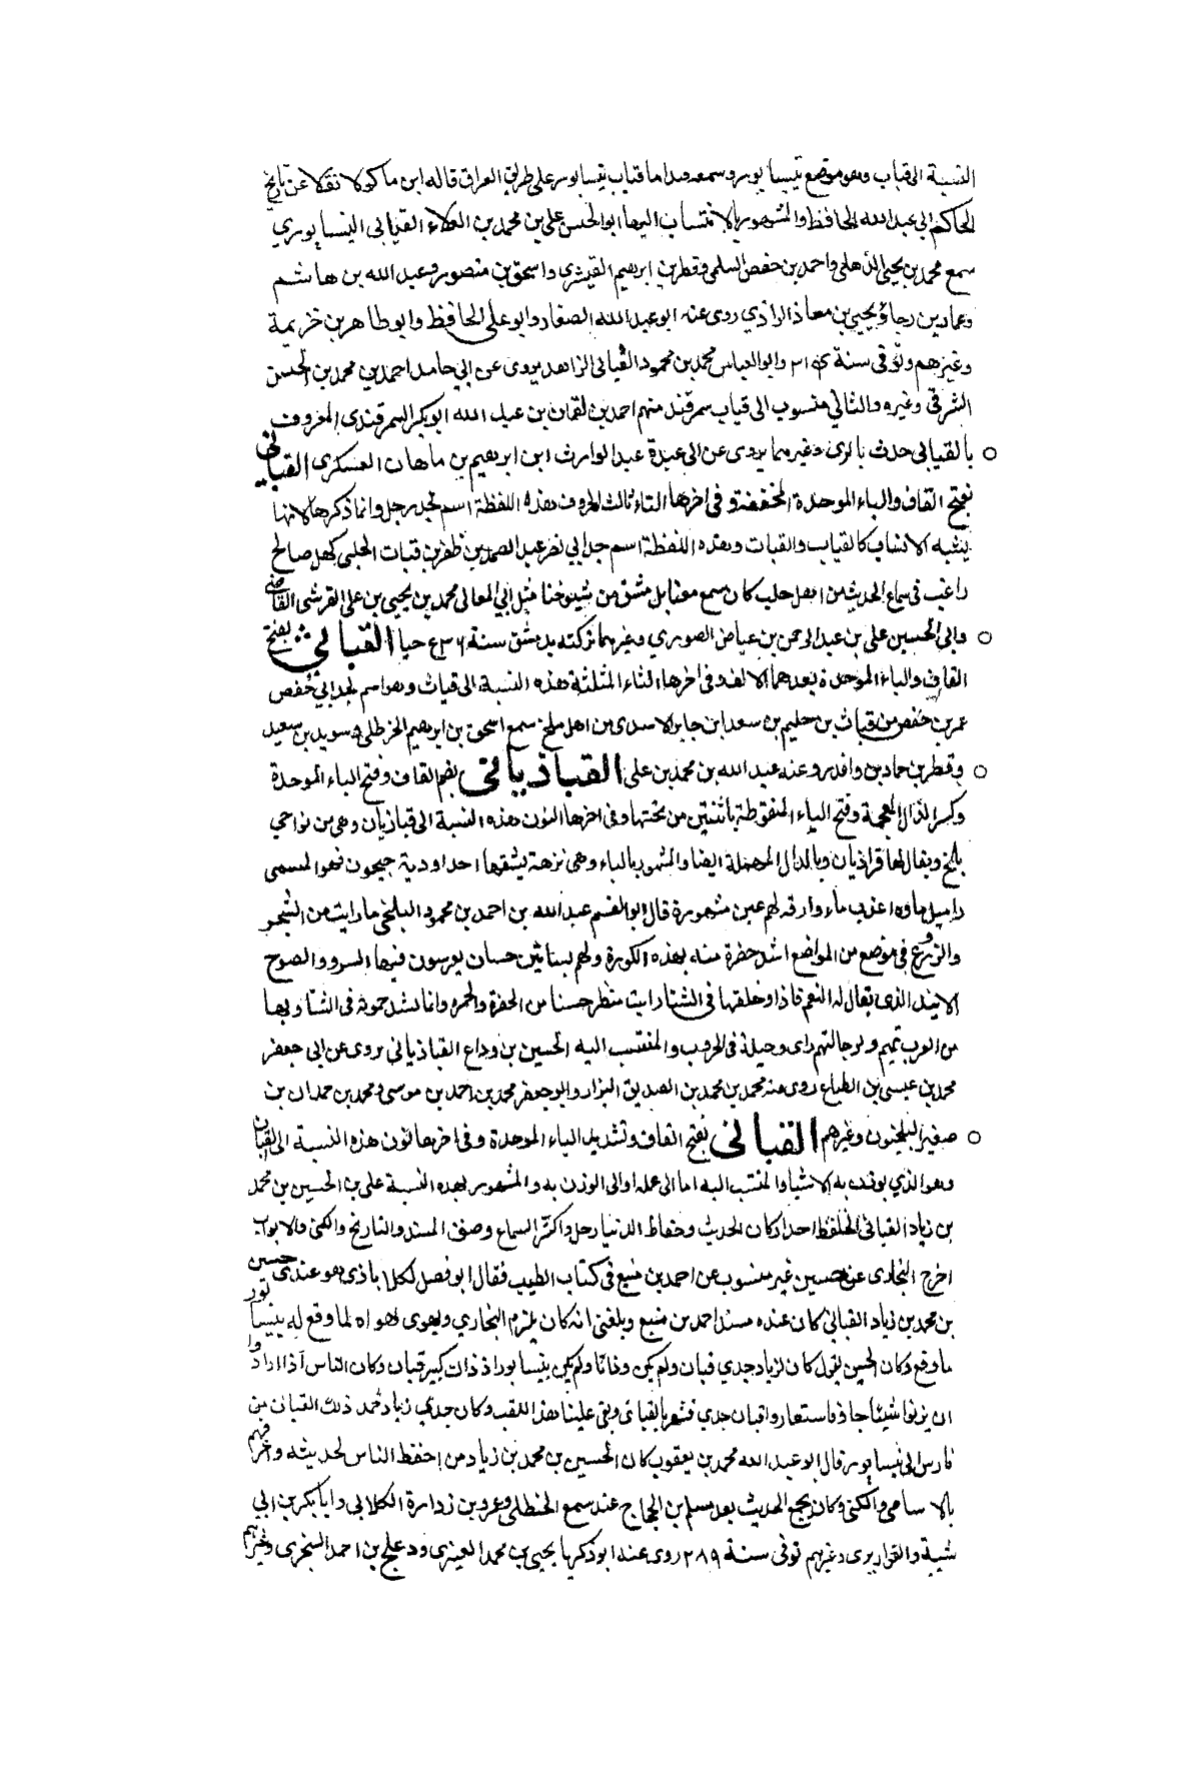 النسبة الى قباب وهو موضع بنيسابور وسمرقند اما قباب نيسابور على طريق العراق قاله ابن ماكولا نقلا عن تاريخ
الحاكم ابي عبد الله الحافظ والمشهور بالانتساب اليها ابو الحسن علي بن محمد بن العلاء القبابى النيسابوري
سمع محمد بن يحيى الذهلي واحمد بن حفص السلمى وقطن بن ابرهيم القشيرى واسحق بن منصور وعبد الله بن هاشم
وعمار بن رجا ويحيى بن معاذ الرازي روى عنه ابو عبد الله الصفار وابو على الحافظ وابو طاهر بن خزيمة
وغيرهم وتوفى سنة وابو العباس محمد بن محمود القبابى الزاهد يروى عن ابي حامد احمد بن محمد بن الحسن
الشرقى وغيره والثاني منسوب الى قباب سمرقند منهم احمد بن لقمان بن عبد الله ابو بكر السمرقندى المعروف
بالقبابى حدث بالرى وغيرها يروى عن ابى عبدة عبد الوارث ابن ابرهيم بن ماهان العسكرى القباتى
بفتح القاف والباء الموحدة المخففة وفى اخرها التاء ثالث الحروف هذه اللفظة اسم لجد رجل وانما ذكرها لانها
يشبه الانساب كالقباب والقبات وهذه اللفظة اسم جد ابي نصر عبد الصمد بن ظفر بن قبات الحلبى كهل صالح
راغب فى سماع الحديث من اهل حلب كان سمع معنا بدمشق من شيوخنا مثل ابي المعالى محمد بن يحيى بن على القرشى القاضى
وابى الحسين على بن عبد الرحمن بن عياض الصوري وغيرهما تركته بدمشق سنة حيا القباثي بفتح
القاف والباء الموحدة بعدهما الالف وفى اخرها الثاء المثلثة هذه النسبة الى قباث وهو اسم لجد ابي حفص
عمر بن حفص بن قباث بن حليم بن سعد ابن جابر الاسدى من اهل بلخ سمع اسحق بن ابرهيم الحنظلى وسويد بن سعيد
وقطن بن حماد بن واقد روعنه عبد الله بن محمد بن على القباذيانى بضم القاف وفتح الباء الموحدة
وكسر الذال المعجمة وفتح الياء المنقوطة باثنتين من تحتها وفى اخرها النون هذه النسبة الى قباذيان وهى من نواحي
بلخ ويقال لها قراذيان وبالدال المهملة ايضا والمشهور بالباء وهى نزهة يشقها احد اودية جيحون فهو المسمى
ماوه اعذب ماء وارقه لهم عين مشهورة قال ابو القسم عبد الله بن احمد بن محمود البلخى ما رايت من الشجر
والزروع فى موضع من المواضع اشد خضرة منه بهذه الكورة ولهم بساتين حسان يغرسون فيها السرو و
الذى يقال له فى الشتا رايت منظرا حسنا من الخضرة والحمرة فى الشتا وبها
من العرب تميم ولرجالتهم راى وحيلة فى الحروب والمنتسب اليه الحسين بن وداع القباذيانى يروى عن ابى جعفر
محمد بن عيسى بن الطباع روى عنه محمد بن محمد بن الصديق البزار وابو جعفر محمد بن احمد بن موسى ومحمد بن حمدان بن
صغير البلخيون وغيرهم القبانى بفتح القاف وتشديد الباء الموحدة وفى اخرها نون هذه النسبة الى القبان
وهو الذي يوزن به الاشيا والمنتسب اليه اما الى عمله او الى الوزن به والمشهور بهذه النسبة على بن الحسين بن محمد
بن زياد القبانى الحافظ احد اركان الحديث وحفاظ الدنيا رحل واكثر السماع وصنف المسند والتاريخ والكنى والابواب
اخرج البخارى عن حسين غير منسوب عن احمد بن منيع فى كتاب الطب فقال ابو نصر الكلاباذى هو عندى حسين
بن محمد بن زياد القبانى كان عنده مسند احمد بن منيع وبلغنى انه كان يلزم البخاري ويهوى هواه لما وقع له بنيسابور
ما وقع وكان الحسين يقول كان لزياد جدي قبان ولم يكن وزانا ولم يكن بنيسابور اذ ذاك كبير قبان وكان الناس اذا ارادوا
ان يزنوا شيئا جاؤ فاستعاروا قبان جدي فشهر بالقبانى وبقى علينا هذا اللقب وكان جدى زياد حمل ذلك القبان من
فارس الى نيسابور قال ابو عبد الله محمد بن يعقوب كان الحسين بن محمد بن زياد من احفظ الناس لحديثه واعرفهم
بالاسامى والكنى وكان يجمع الحديث بعد مسلم بن الحجاج عنده سمع الحنظلى وعمرو بن زرارة الكلابى وابا بكر بن ابي
شيبة والقواريرى وغيرهم توفى سنة ٢٨٩ روى عنه ابو زكريا يحيى بن محمد العنبرى ودعلج بن احمد السجزى وغيرهم